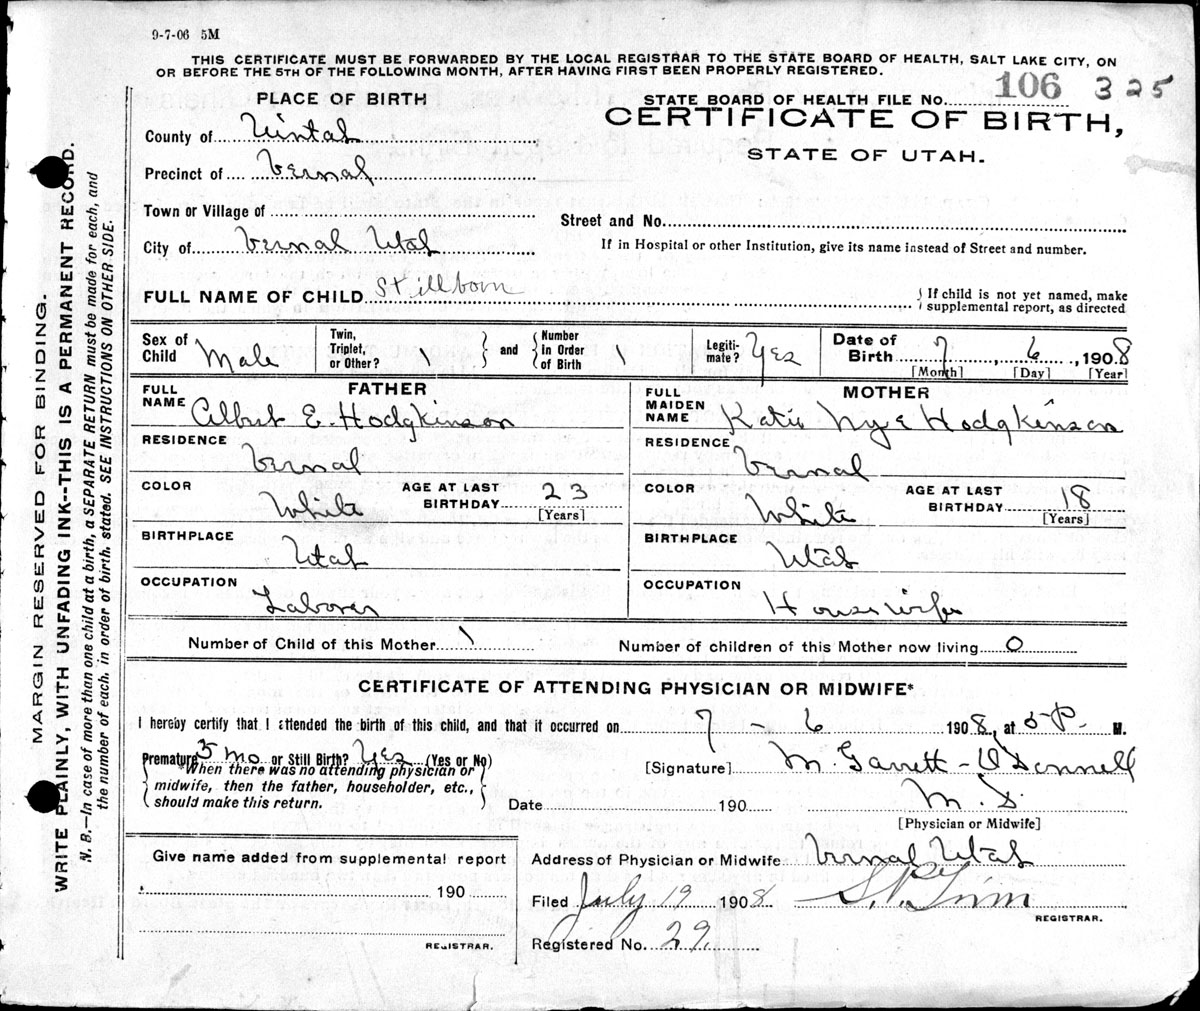 9-7-06 5M
THIS CERTIFICATE MUST BE FORWARDED BY THE LOCAL REGISTRAR TO THE STATE BOARD OF HEALTH, SALT LAKE CITY, ON
OR BEFORE THE 5TH OF THE FOLLOWING MONTH, AFTER HAVING FIRST BEEN PROPERLY REGISTERED.
PLACE OF BIRTH
STATE BOARD OF HEALTH FILE No. 106 325
CERTIFICATE OF BIRTH,
STATE OF UTAH.
County of Uintah
Precinct of Vernal
Town or Village of
Street and No.
City of Vernal Utah
If in Hospital or other Institution, give its name instead of Street and number.
FULL NAME OF CHILD Stillborn
If child is not yet named, make
supplemental report, as directed
Sex of Child Male
Twin, Triplet, or Other? 1 and Number in Order of Birth 1
Legitimate? Yes
Date of Birth 7 6 1908
[Month] [Day] [Year]
FATHER
FULL NAME Albert E. Hodgkinson
RESIDENCE Vernal
COLOR White AGE AT LAST BIRTHDAY 23
[Years]
BIRTHPLACE Utah
OCCUPATION Laborer
MOTHER
FULL MAIDEN NAME Katie Nye Hodgkinson
RESIDENCE Vernal
COLOR White AGE AT LAST BIRTHDAY 18
[Years]
BIRTHPLACE Utah
OCCUPATION Housewife
Number of Child of this Mother 1 Number of children of this Mother now living 0
CERTIFICATE OF ATTENDING PHYSICIAN OR MIDWIFE*
I hereby certify that I attended the birth of this child, and that it occurred on 7 - 6 1908, at 5 P. M.
Premature 5 mo or Still Birth? Yes (Yes or No)
*When there was no attending physician or
midwife, then the father, householder, etc.,
should make this return.
[Signature] M. Garrett-O'Donnell
Date 190 M. D.
[Physician or Midwife]
Give name added from supplemental report
190
REGISTRAR.
Address of Physician or Midwife Vernal Utah
Filed July 19 1908
REGISTRAR.
Registered No. 29.
MARGIN RESERVED FOR BINDING.
WRITE PLAINLY, WITH UNFADING INK--THIS IS A PERMANENT RECORD.
N. B.—In case of more than one child at a birth, a SEPARATE RETURN must be made for each, and
the number of each, in order of birth, stated. SEE INSTRUCTIONS ON OTHER SIDE.